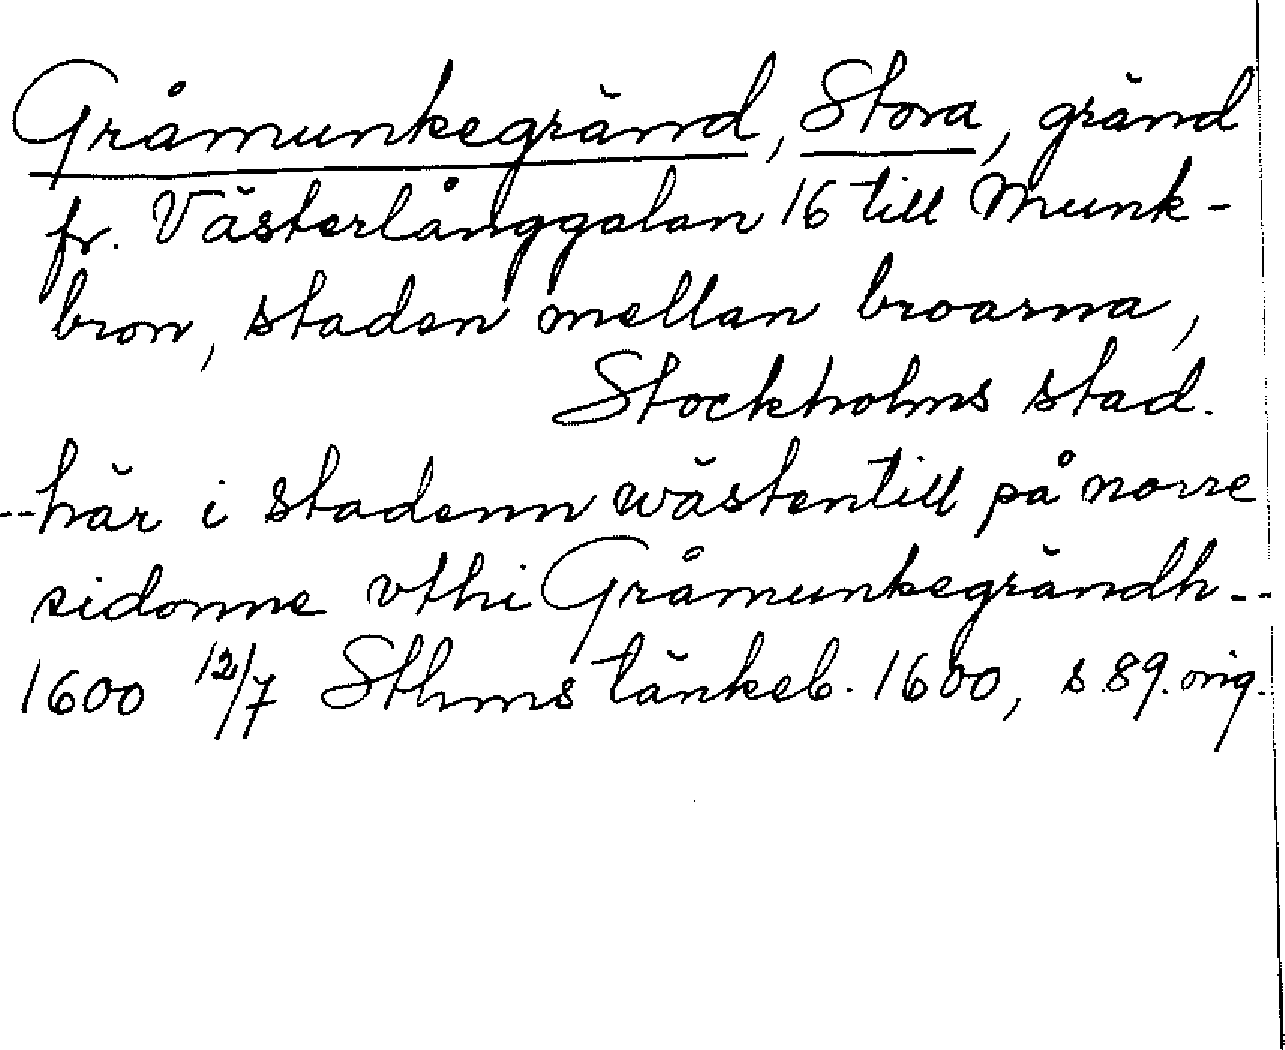 Gråmunkegränd, Stora, gränd
fr. Västerlånggatan 16 till Munk-
bron, staden mellan broarna,
Stockholms stad.
--här i stadenn wästentill på norre
sidonne vthi Gråmunkegrändh--
1600 12/7 Sthms tänkeb. 1600, s 89. orig.